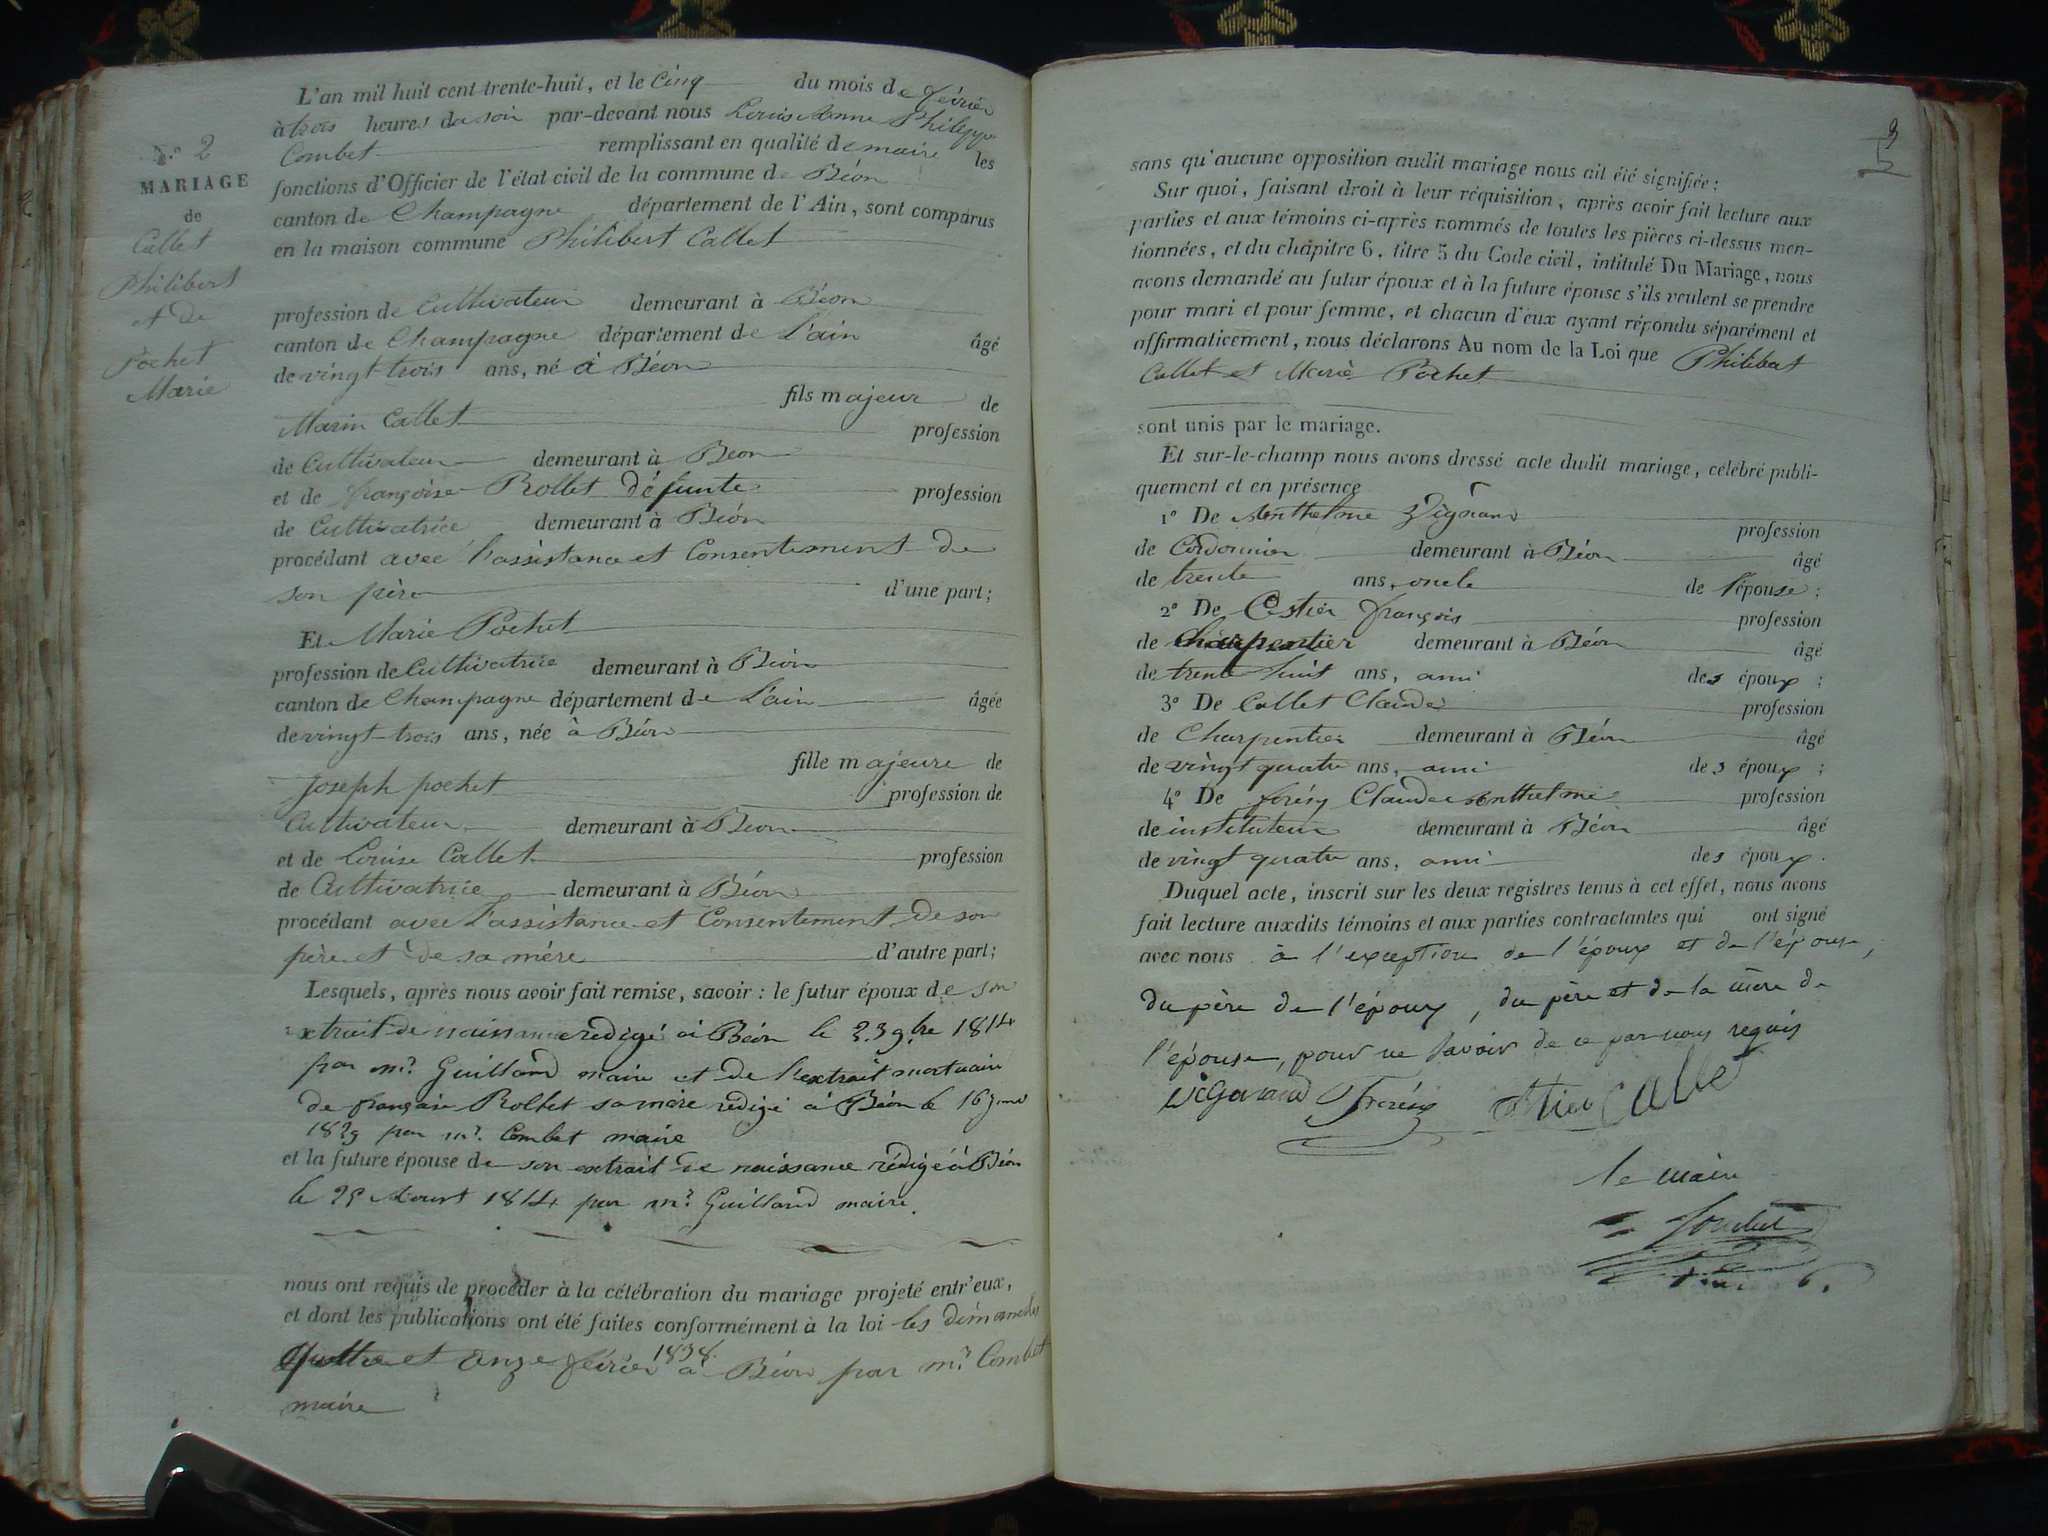 N° 2
MARIAGE
de
Callet
Philibert
et de
Pochet
Marie
L'an mil huit cent trente-huit, et le Cinq du mois de février
à trois heures du soir par-devant nous Louis Anne Philippe
Combet remplissant en qualité de maire les
fonctions d'Officier de l'état civil de la commune de Béon
canton de Champagne département de l'Ain, sont comparus
en la maison commune Philibert Callet
profession de Cultivateur demeurant à Béon
canton de Champagne département de L'ain âgé
de vingt trois ans, né à Béon
fils majeur de
Marin Callet profession
de Cultivateur demeurant à Béon
et de françoise Rollet défunte profession
de Cultivatrice demeurant à Béon
procédant avec l'assistance et Consentement de
son père d'une part;
Et Marie Pochet
profession de Cultivatrice demeurant à Béon
canton de Champagne département de L'ain âgée
de vingt-trois ans, née à Béon
fille majeure de
Joseph pochet profession de
Cultivateur demeurant à Béon
et de Louise Callet profession
de Cultivatrice demeurant à Béon
procédant avec l'assistance et Consentement de son
père et de sa mère d'autre part;
Lesquels, après nous avoir fait remise, savoir: le futur époux de son
extrait de naissance redigé à Béon le 23 9.bre 1814
par mr. Guilland maire et de l'extrait mortuaire
de françoise Rollet sa mère redigé à Béon le 16
par mr. Combet maire
et la future épouse de son extrait de naissance rédigé à Béon
le Aoust 1814 par mr. Guilland maire.
nous ont requis de procéder à la célébration du mariage projeté entr'eux,
et dont les publications ont été faites conformément à la loi les dimanches
quatre et Onze février 1838 à Béon par mr. Combet
maire
sans qu'aucune opposition audit mariage nous ait été signifiée;
Sur quoi, faisant droit à leur réquisition, après avoir fait lecture aux
parties et aux témoins ci-après nommés de toutes les pièces ci-dessus men-
tionnées, et du chapitre 6, titre 5 du Code civil, intitulé Du Mariage, nous
avons demandé au futur époux et à la future épouse s'ils veulent se prendre
pour mari et pour femme, et chacun d'eux ayant répondu séparément et
affirmativement, nous déclarons Au nom de la Loi que Philibert
Callet et Marie Pochet
sont unis par le mariage.
Et sur-le-champ nous avons dressé acte dudit mariage, célébré publi-
quement et en présence
1° De Anthelme Vignand profession
de Cordonnier demeurant à Béon âgé
de trente ans, oncle de l'épouse;
2° De Ostier françois profession
de Charpentier demeurant à Béon âgé
de trente huit ans, ami des époux;
3° De Callet Claude profession
de Charpentier demeurant à Béon âgé
de vingt quatre ans, ami des époux;
4° De Claude Anthelme profession
de instituteur demeurant à Béon âgé
de vingt quatre ans, ami des époux.
Duquel acte, inscrit sur les deux registres tenus à cet effet, nous avons
fait lecture auxdits témoins et aux parties contractantes qui ont signé
avec nous à l'exception de l'époux et de l'épouse,
du père de l'époux, du père et de la mère de
l'épouse, pour ne savoir de ce par nous requis
Ostier Callet
le maire
Combet